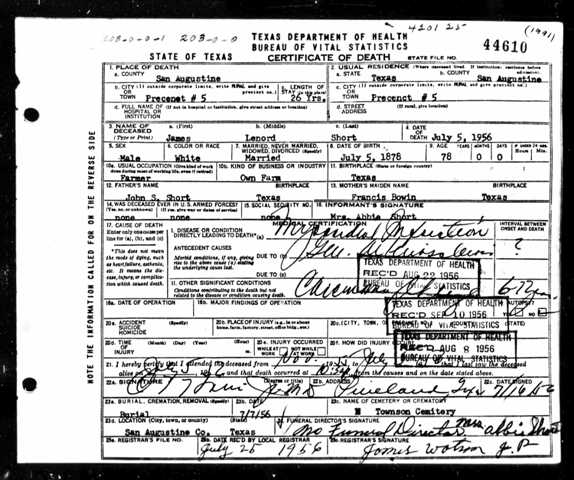 420125
(1991)
203-0-0-1 203-0-0
TEXAS DEPARTMENT OF HEALTH
BUREAU OF VITAL STATISTICS
44610
STATE OF TEXAS CERTIFICATE OF DEATH STATE FILE NO.
1. PLACE OF DEATH
a. COUNTY
San Augustine
2. USUAL RESIDENCE (Where deceased lived. If institution: residence before admission)
a. STATE b. COUNTY
Texas San Augustine
b. CITY (If outside corporate limits, write RURAL and give precinct no.)
OR
TOWN Precenct # 5
c. LENGTH OF STAY
26 Yrs.
c. CITY (If outside corporate limits, write RURAL and give precinct no.)
OR
TOWN Precenct # 5
d. FULL NAME OF (If not in hospital or institution, give street address or location)
HOSPITAL OR
INSTITUTION
d. STREET
ADDRESS (If rural, give location)
3. NAME OF DECEASED (Type or Print)
a. (First) b. (Middle) c. (Last)
James Lenord Short
4. DATE OF DEATH July 5, 1956
5. SEX 6. COLOR OR RACE 7. MARRIED, NEVER MARRIED, WIDOWED, DIVORCED (Specify) 8. DATE OF BIRTH 9. AGE YEARS MONTHS DAYS
Male White Married July 5, 1878 78 0 0
10a. USUAL OCCUPATION 10b. KIND OF BUSINESS OR INDUSTRY 11. BIRTHPLACE (State or foreign country)
Farmer Own Farm Texas
12. FATHER'S NAME BIRTHPLACE 13. MOTHER'S MAIDEN NAME BIRTHPLACE
John S. Short Texas Francis Bowin Texas
14. WAS DECEASED EVER IN U.S. ARMED FORCES? 15. SOCIAL SECURITY NO. 16. INFORMANT'S SIGNATURE
none none none Mrs. Abbie Short
17. CAUSE OF DEATH
Enter only one cause per line for (a), (b), and (c)
MEDICAL CERTIFICATION
INTERVAL BETWEEN ONSET AND DEATH
I. DISEASE OR CONDITION
DIRECTLY LEADING TO DEATH* (a)
ANTECEDENT CAUSES
DUE TO (b)
DUE TO (c)
*This does not mean the mode of dying, such as heart failure, asthenia, etc. It means the disease, injury, or complication which caused death.
Morbid conditions, if any, giving rise to the above cause (a) stating the underlying cause last.
II. OTHER SIGNIFICANT CONDITIONS
Conditions contributing to the death but not related to the disease or condition causing death.
TEXAS DEPARTMENT OF HEALTH
REC'D AUG 22 1956
BUREAU OF VITAL STATISTICS
18a. DATE OF OPERATION 18b. MAJOR FINDINGS OF OPERATION
TEXAS DEPARTMENT OF HEALTH
REC'D SEP 10 1956
BUREAU OF VITAL STATISTICS
20a. ACCIDENT
SUICIDE
HOMICIDE
20b. PLACE OF INJURY
20c. (CITY, TOWN,
TEXAS DEPARTMENT OF HEALTH
REC'D AUG 8 1956
BUREAU OF VITAL STATISTICS
20d. TIME OF INJURY
20e. INJURY OCCURRED
WHILE AT WORK NOT WHILE AT WORK
20f. HOW DID INJURY
21. I hereby certify that I attended the deceased from
22a. SIGNATURE 22b. ADDRESS 22c. DATE SIGNED
Pineland Tex 7/16/56
23a. BURIAL, CREMATION, REMOVAL (Specify) 23b. DATE 23c. NAME OF CEMETERY OR CREMATORY
Burial 7/7/56 Townson Cemitery
23d. LOCATION (City, town, or county) (State) 24. FUNERAL DIRECTOR'S SIGNATURE
San Augustine Co. Texas No Funeral Director Mrs. Abbie Short
25a. REGISTRAR'S FILE NO. 25b. DATE REC'D BY LOCAL REGISTRAR 25c. REGISTRAR'S SIGNATURE
July 25 1956 James Watson J.P
NOTE THE INFORMATION CALLED FOR ON THE REVERSE SIDE